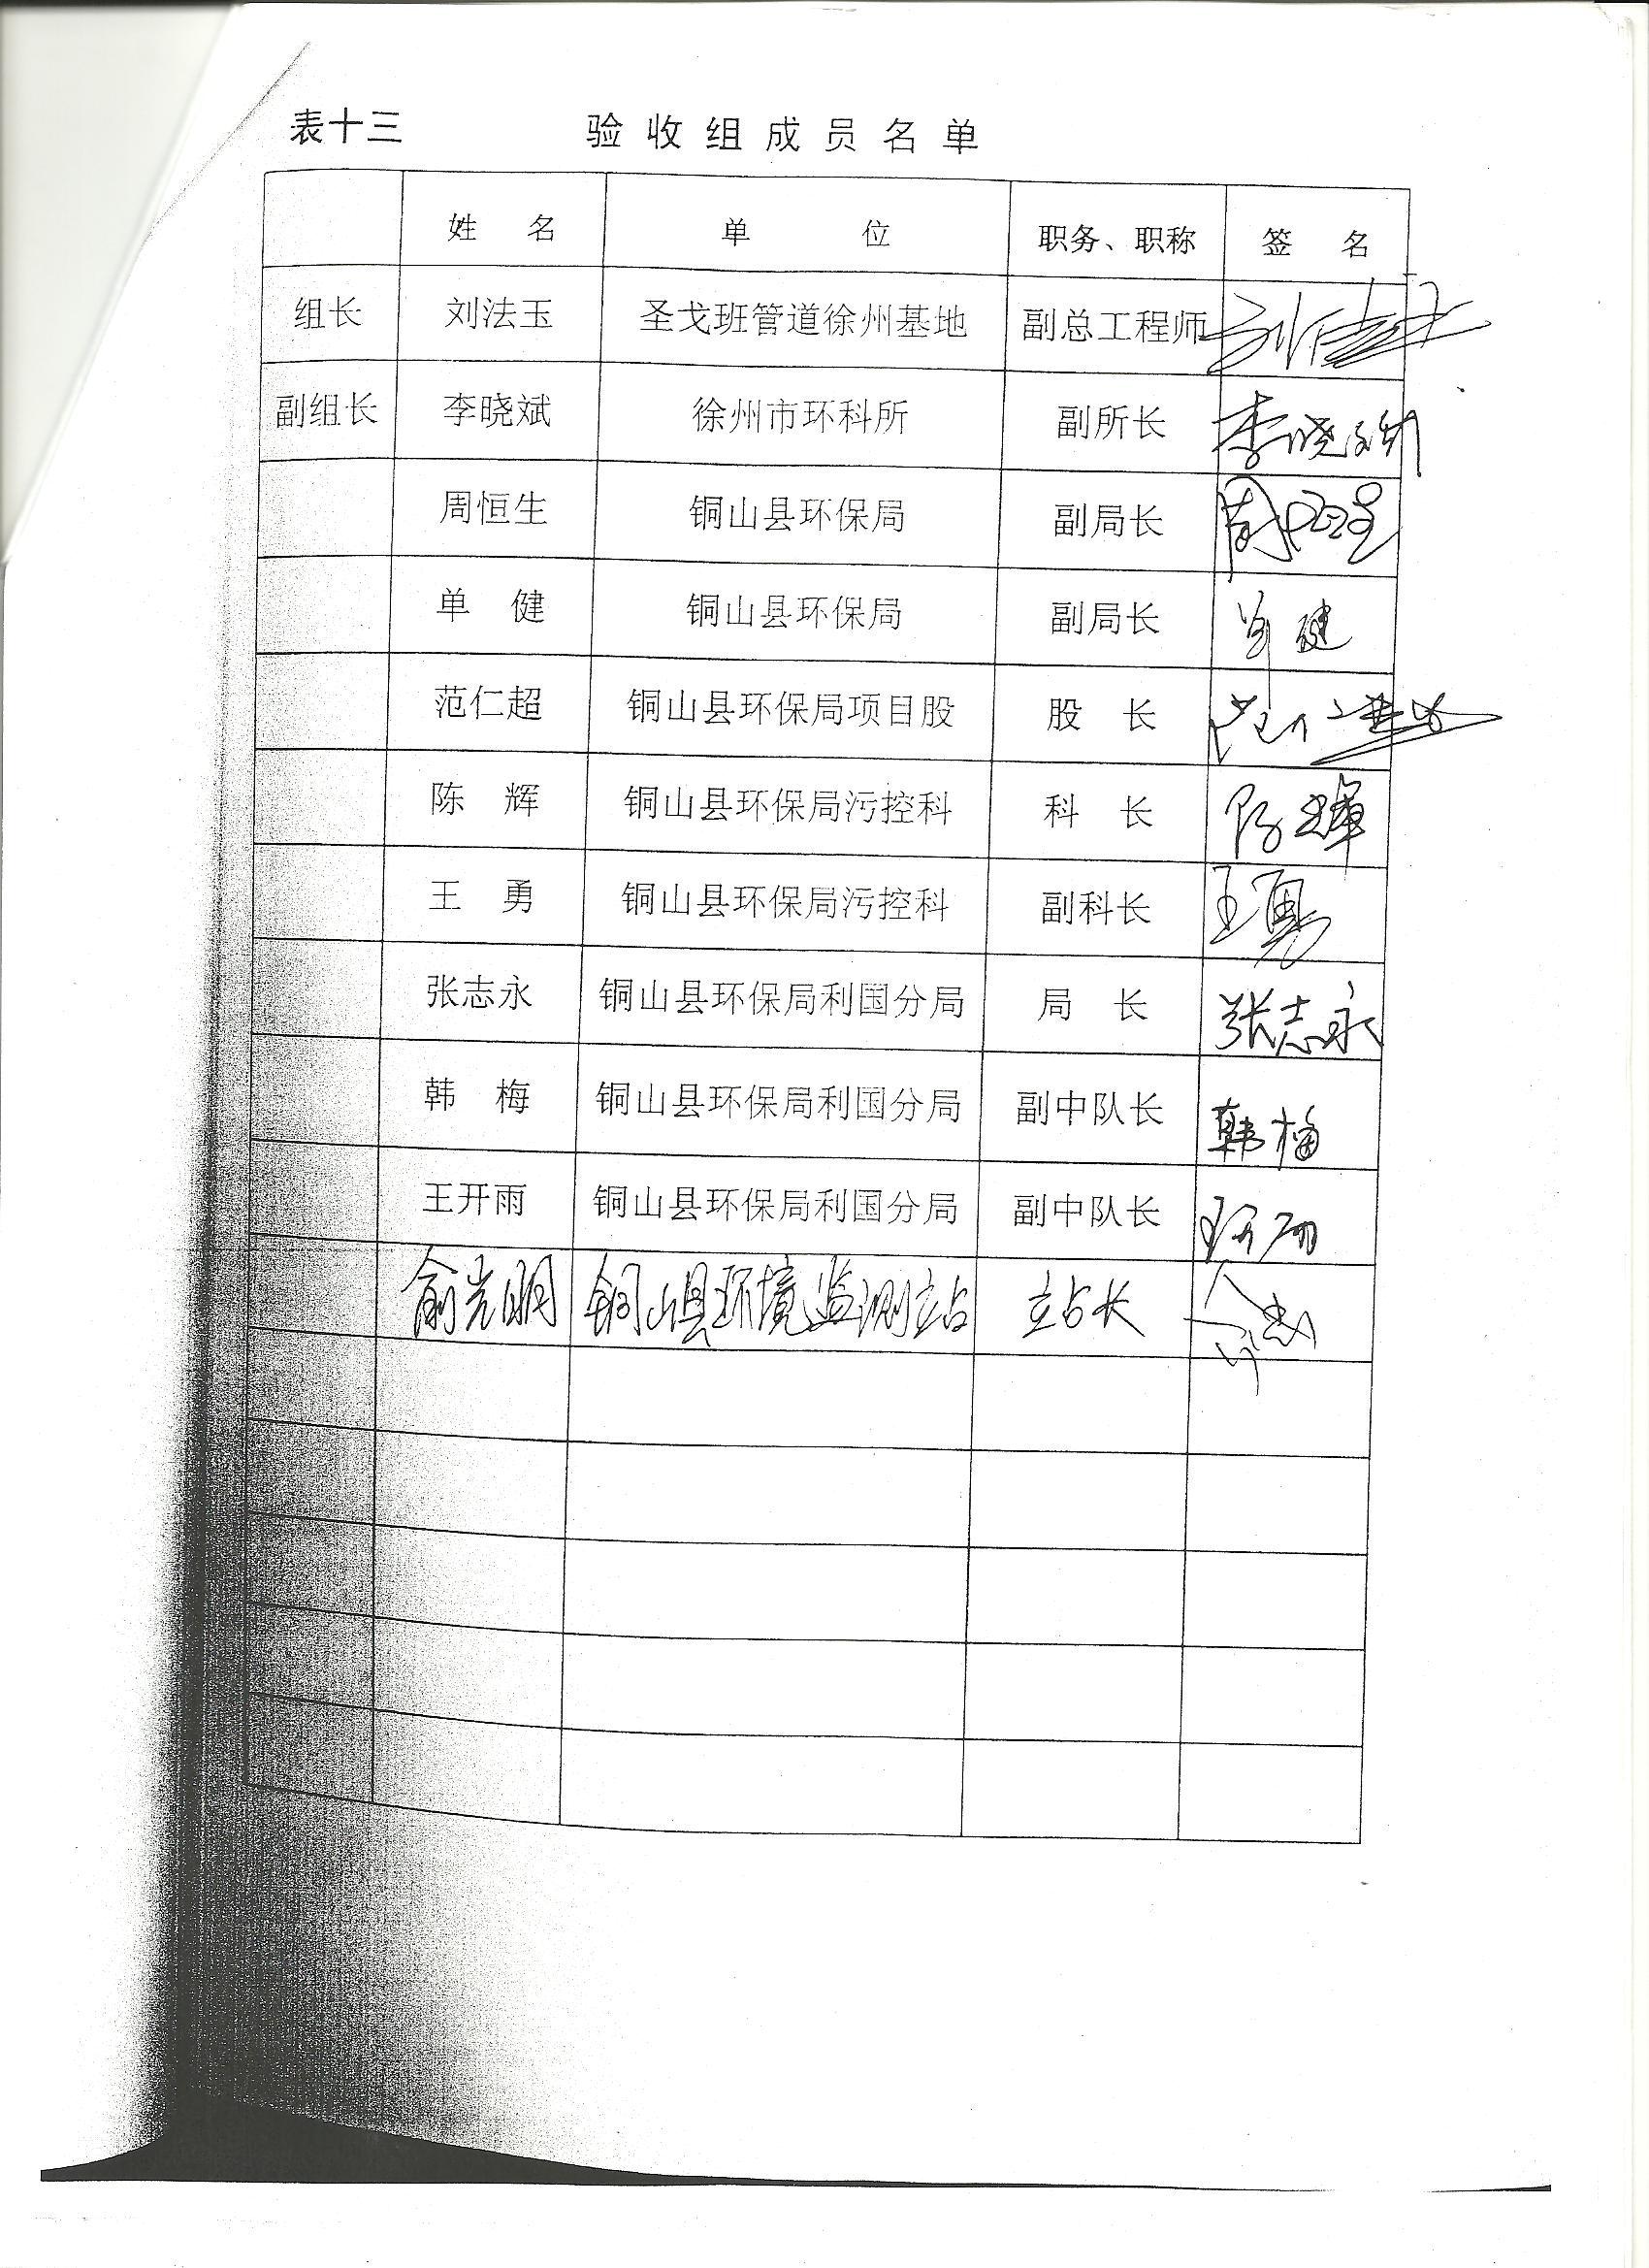 表十三 验收组成员名单
姓 名 单 位 职务、职称 签 名
组长 刘法玉 圣戈班管道徐州基地 副总工程师
副组长 李晓斌 徐州市环科所 副所长 李晓斌
周恒生 铜山县环保局 副局长
单 健 铜山县环保局 副局长 单健
范仁超 铜山县环保局项目股 股 长
陈 辉 铜山县环保局污控科 科 长 陈辉
王 勇 铜山县环保局污控科 副科长 王勇
张志永 铜山县环保局利国分局 局 长 张志永
韩 梅 铜山县环保局利国分局 副中队长 韩梅
王开雨 铜山县环保局利国分局 副中队长 王开雨
俞光明 铜山县环境监测站 站长